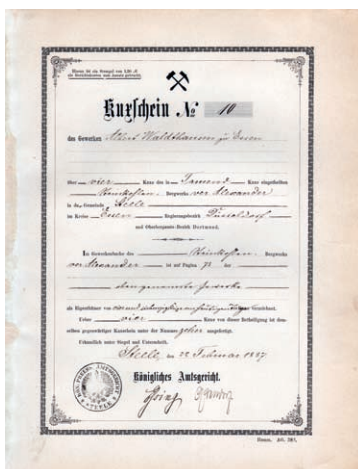 Kuxschein № 10
des Gewerken Albert Waldthausen zu Essen
über vier Kuxe des in Tausend Kuxe eingetheilten
Steinkohlen Bergwerks ver. Alexander
in der Gemeinde Steele
im Kreise Essen Regierungsbezirk Düsseldorf
und Oberbergamts-Bezirk Dortmund.
Im Gewerkenbuche des Steinkohlen Bergwerks
ver. Alexander ist auf Pagina der
obengenannte Gewerke
als Eigenthümer von vier und Kuxe verzeichnet.
Ueber vier Kuxe von dieser Betheiligung ist dem-
selben gegenwärtiger Kuxschein unter der Nummer zehn ausgefertigt.
Urkundlich unter Siegel und Unterschrift.
Steele, den 22 Februar 1887
Königliches Amtsgericht.
STEELE